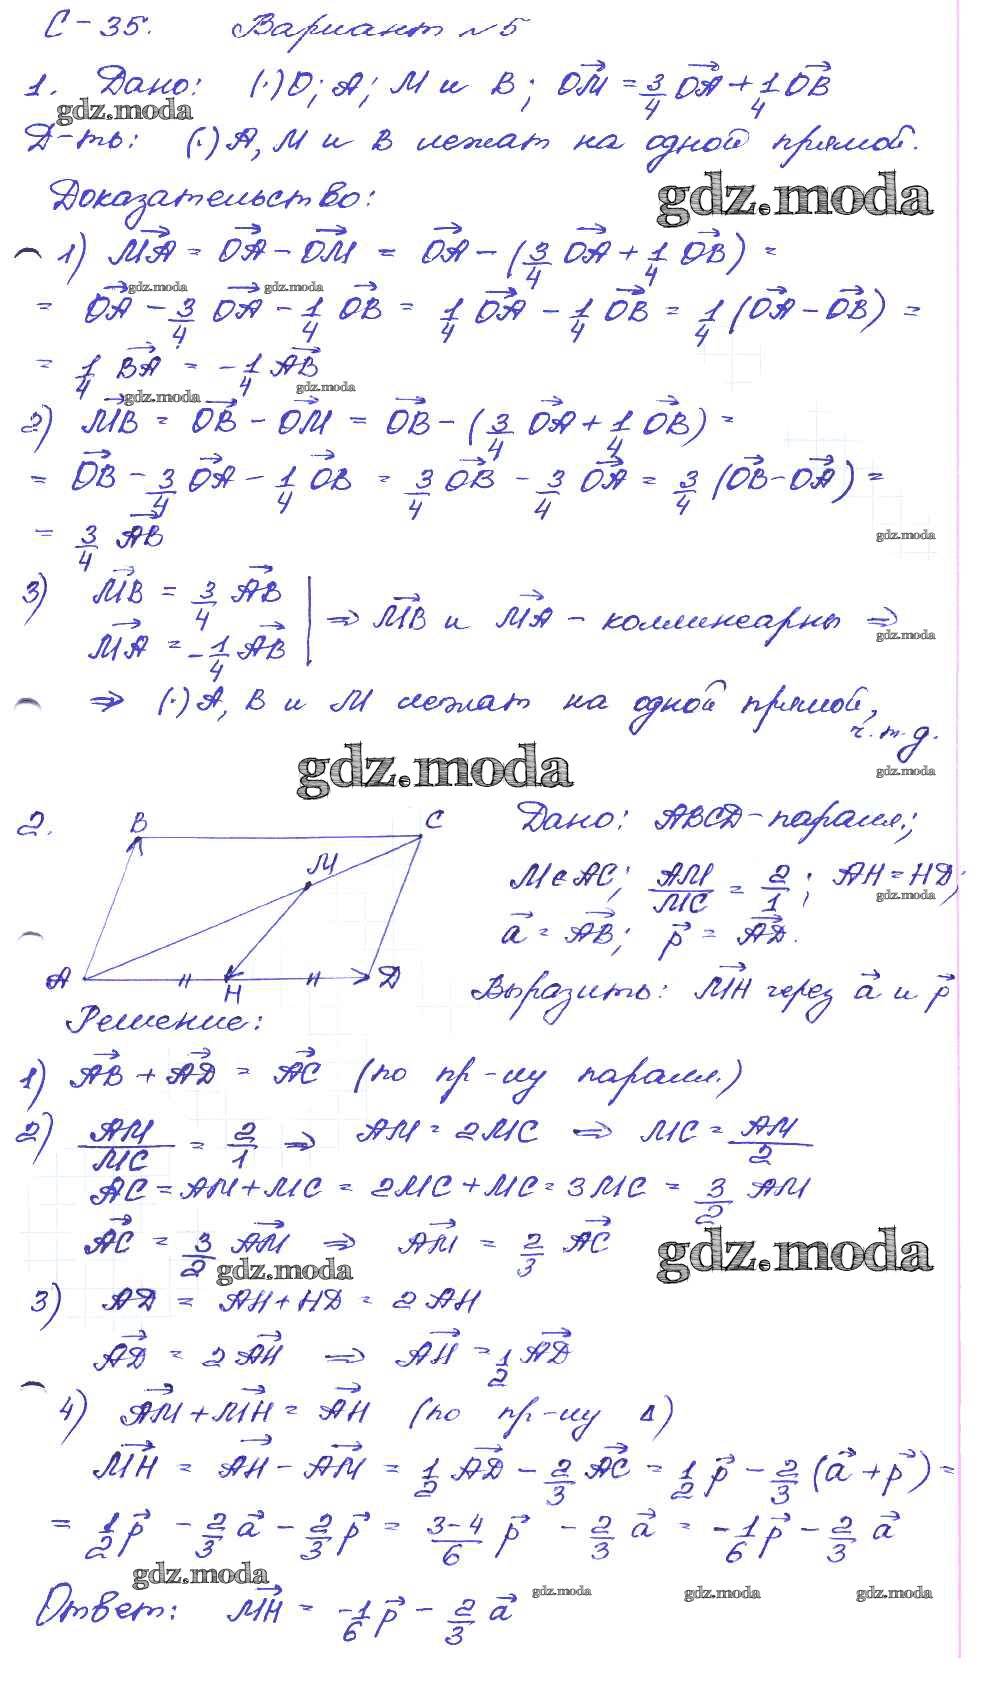 С-35. Вариант №5
1. Дано: (·)О; А; М и В; OM⃗ = 3/4 OA⃗ + 1/4 OB⃗
gdz.moda
Д-ть: (·) А, М и В лежат на одной прямой.
Доказательство:
gdz.moda
1) MA⃗ = OA⃗ - OM⃗ = OA⃗ - (3/4 OA⃗ + 1/4 OB⃗) =
gdz.moda gdz.moda
= OA⃗ - 3/4 OA⃗ - 1/4 OB⃗ = 1/4 OA⃗ - 1/4 OB⃗ = 1/4 (OA⃗ - OB⃗) =
= 1/4 BA⃗ = -1/4 AB⃗
gdz.moda gdz.moda
2) MB⃗ = OB⃗ - OM⃗ = OB⃗ - (3/4 OA⃗ + 1/4 OB⃗) =
= OB⃗ - 3/4 OA⃗ - 1/4 OB⃗ = 3/4 OB⃗ - 3/4 OA⃗ = 3/4 (OB⃗ - OA⃗) =
= 3/4 AB⃗
gdz.moda
3) MB⃗ = 3/4 AB⃗
MA⃗ = -1/4 AB⃗ | ⇒ MB⃗ и MA⃗ - коллинеарны ⇒
gdz.moda
⇒ (·) А, В и М лежат на одной прямой,
ч.т.д.
gdz.moda gdz.moda
2. B C M A H D
Дано: ABCD - паралл.;
M∈AC; AM/MC = 2/1; AH = HD;
gdz.moda
a⃗ = AB⃗; p⃗ = AD⃗.
Выразить: MH⃗ через a⃗ и p⃗
Решение:
1) AB⃗ + AD⃗ = AC⃗ (по пр-лу паралл.)
2) AM/MC = 2/1 ⇒ AM = 2MC ⇒ MC = AM/2
AC = AM + MC = 2MC + MC = 3MC = 3/2 AM
AC⃗ = 3/2 AM⃗ ⇒ AM⃗ = 2/3 AC⃗
gdz.moda gdz.moda
3) AD = AH + HD = 2AH
AD⃗ = 2AH⃗ ⇒ AH⃗ = 1/2 AD⃗
4) AM⃗ + MH⃗ = AH⃗ (по пр-лу Δ)
MH⃗ = AH⃗ - AM⃗ = 1/2 AD⃗ - 2/3 AC⃗ = 1/2 p⃗ - 2/3 (a⃗ + p⃗) =
= 1/2 p⃗ - 2/3 a⃗ - 2/3 p⃗ = 3-4/6 p⃗ - 2/3 a⃗ = -1/6 p⃗ - 2/3 a⃗
gdz.moda
Ответ: MH⃗ = -1/6 p⃗ - 2/3 a⃗
gdz.moda gdz.moda gdz.moda